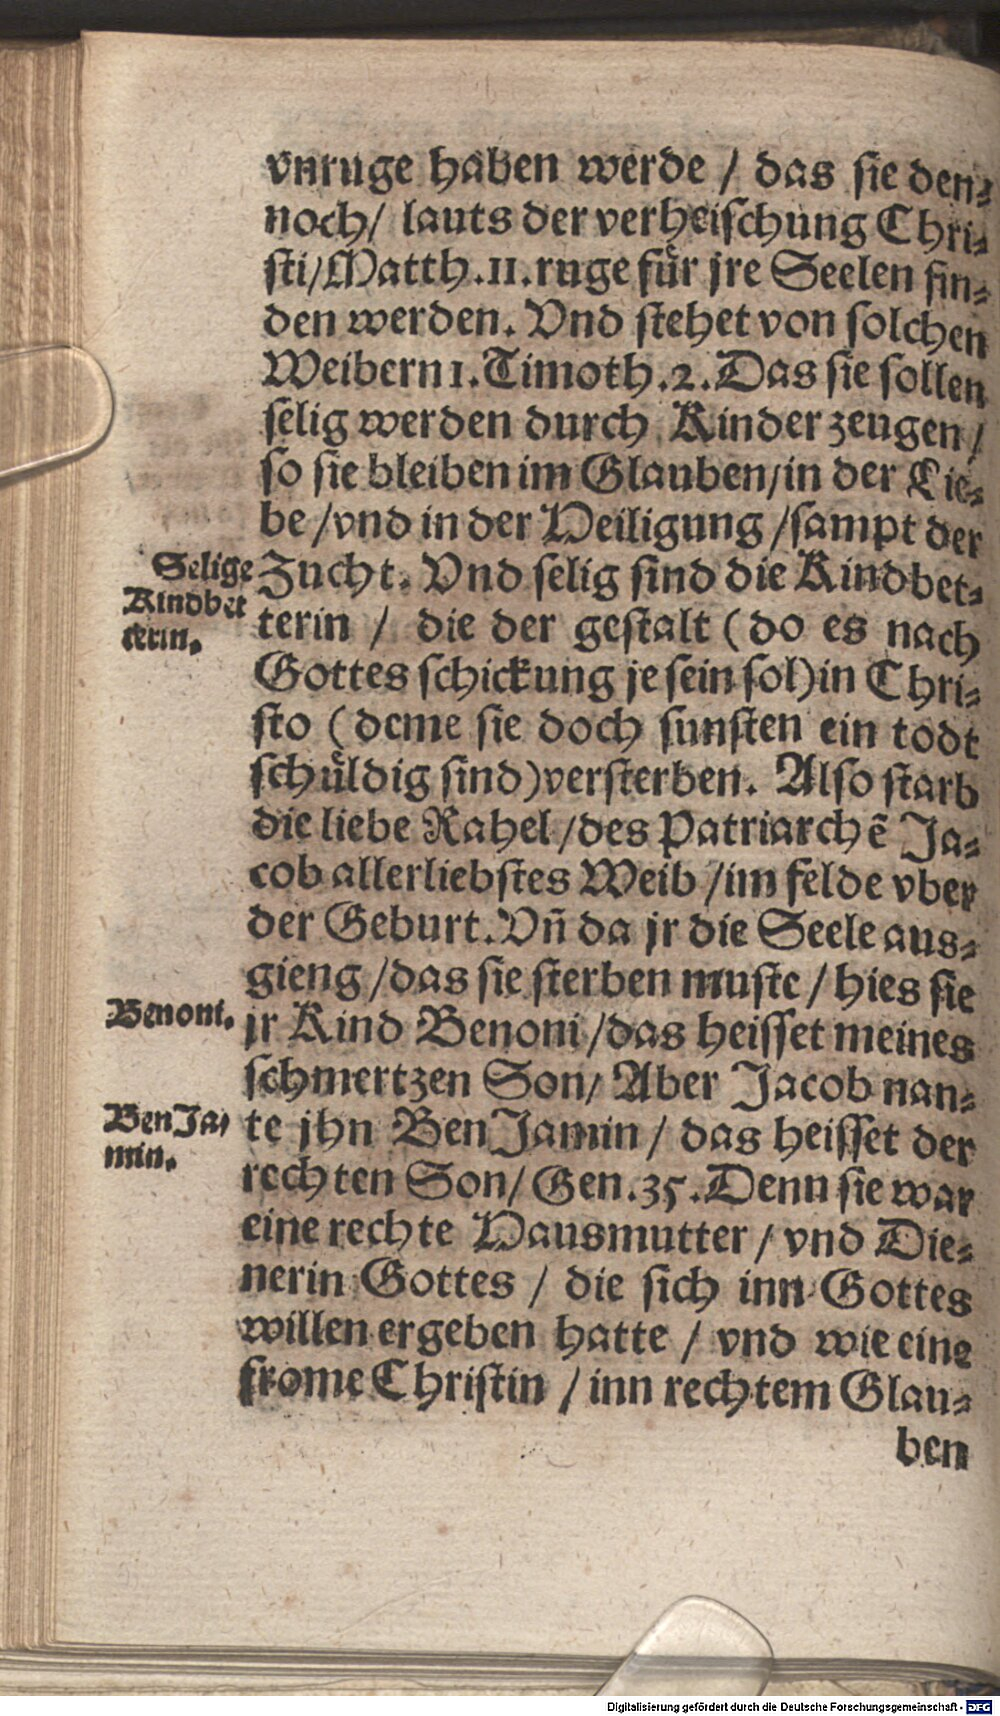 vnruge haben werde / das sie den⸗
noch/ lauts der verheischung Chri⸗
sti/Matth.11.ruge fuͤr jre Seelen fin⸗
den werden. Vnd stehet von solchen
Weibern 1. Timoth.2. Das sie sollen
selig werden durch Kinder zeugen/
so sie bleiben im Glauben/in der Lie⸗
be/vnd in der Heiligung/sampt der
Selige
Kindbet
terin.
Zucht. Vnd selig sind die Kindbet⸗
terin / die der gestalt (do es nach
Gottes schickung je sein sol) in Chri⸗
sto (deme sie doch sunsten ein todt
schuͤldig sind) versterben. Also starb
die liebe Rahel/des Patriarchẽ Ja⸗
cob allerliebstes Weib/im felde vber
der Geburt. Vñ da jr die Seele aus⸗
gieng/das sie sterben muste/hies sie
Benoni.
jr Kind Benoni/das heisset meines
schmertzen Son/ Aber Jacob nan⸗
BenJa/
min.
te jhn BenJamin/ das heisset der
rechten Son/Gen.35. Denn sie war
eine rechte Hausmutter/ vnd Die⸗
nerin Gottes / die sich inn Gottes
willen ergeben hatte / vnd wie eine
frome Christin / inn rechtem Glau⸗
ben
Digitalisierung gefördert durch die Deutsche Forschungsgemeinschaft - DFG